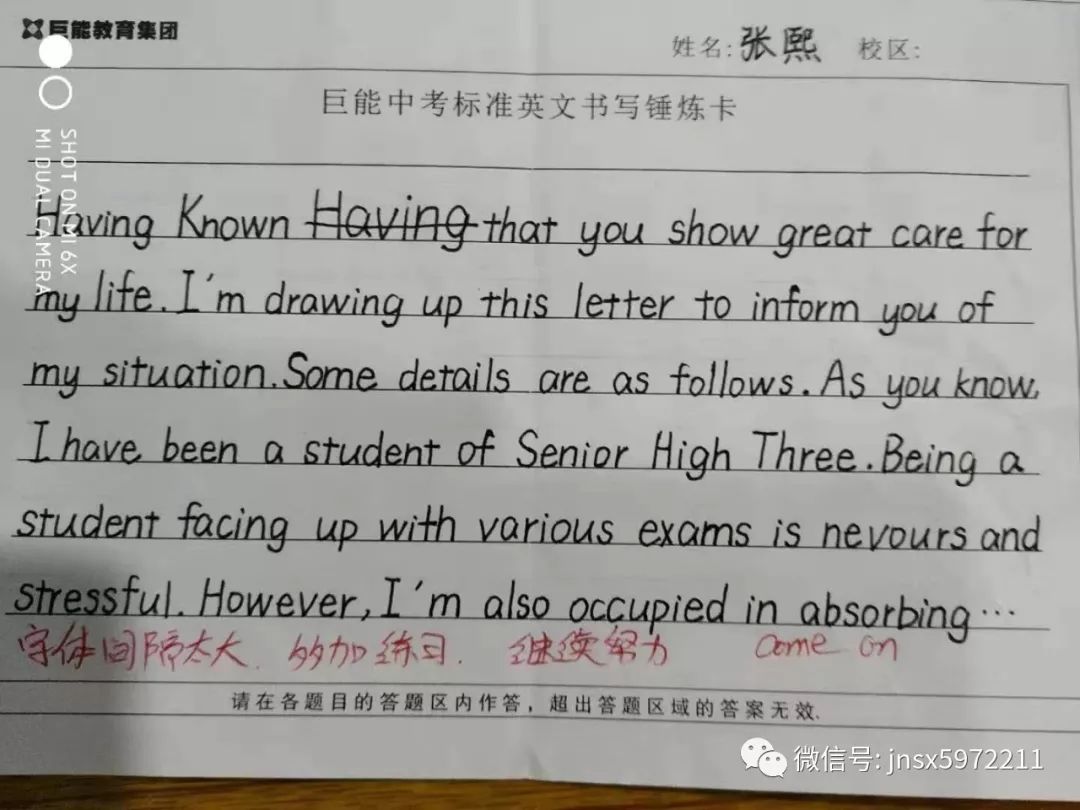 巨能教育集团
姓名:张熙 校区:
巨能中考标准英文书写锤炼卡
Having Known Having that you show great care for
my life. I'm drawing up this letter to inform you of
my situation. Some details are as follows. As you know,
I have been a student of Senior High Three. Being a
student facing up with various exams is nevours and
stressful. However, I'm also occupied in absorbing…
字体间隔太大. 多加练习. 继续努力 Come on
请在各题目的答题区内作答，超出答题区域的答案无效.
SHOT ON MI 6X
MI DUAL CAMERA
微信号: jnsx5972211